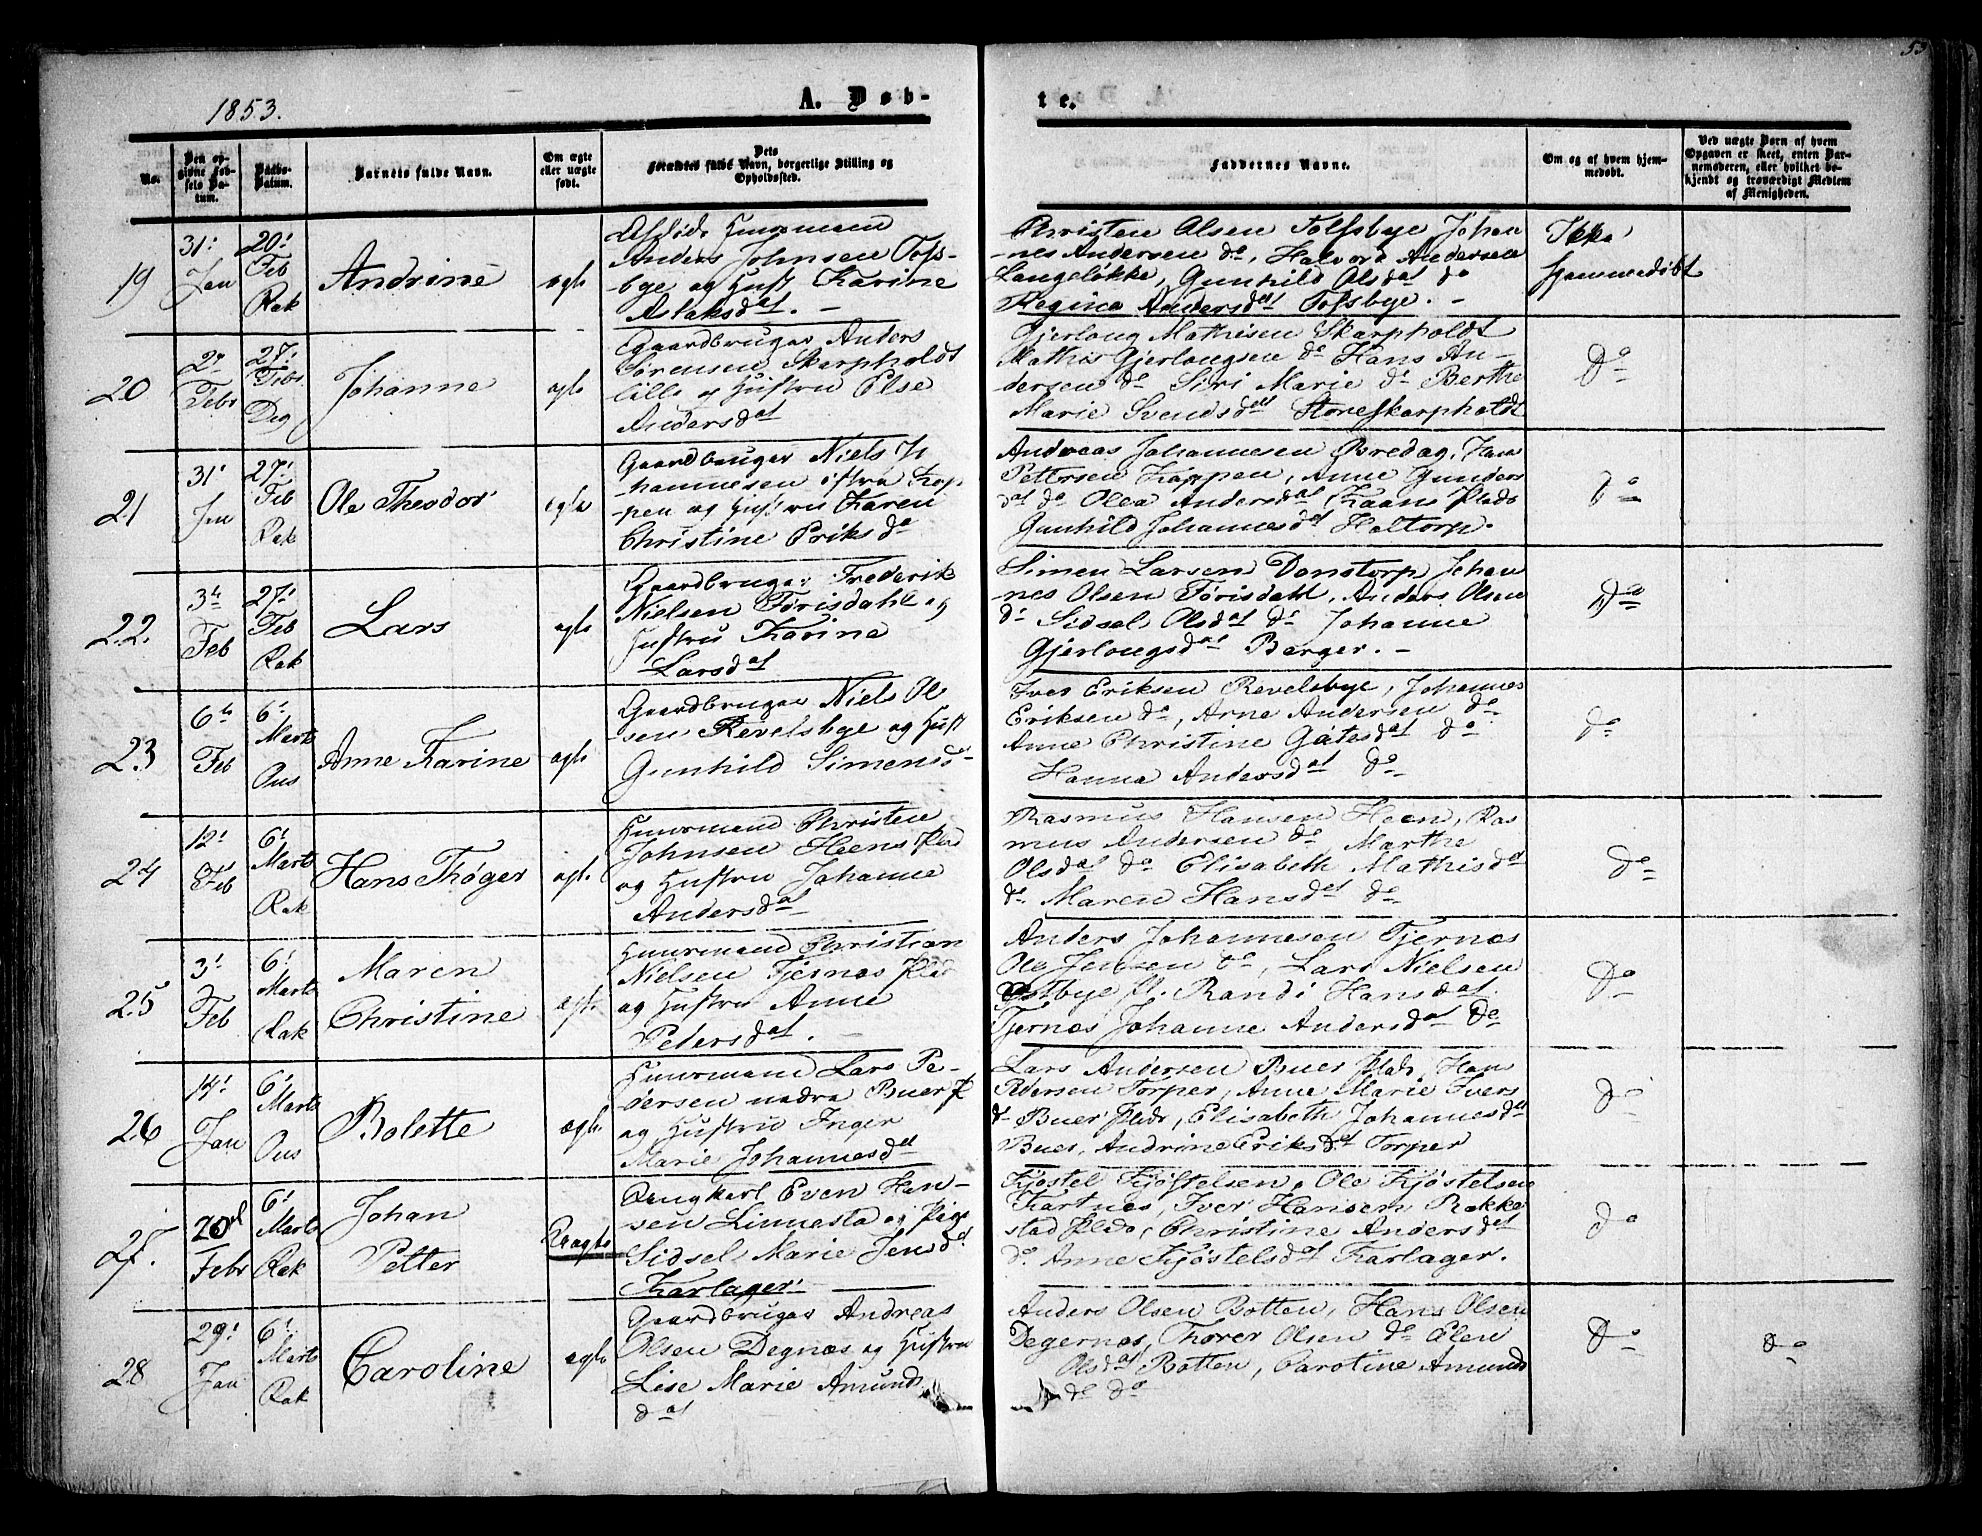 53
1853.
A. Døb-
te.
No.
Den op-
givne Fød-
sels Da-
tum.
Daabs-
Datum.
Barnets fulde Navn.
Om ægte
eller uægte
født.
Dets
Forældres fulde Navn, borgerlige Stilling og
Opholdssted.
Faddernes Navne.
Om og af hvem hjem-
medøbt.
Ved uægte Børn af hvem
Opgaven er skeet, enten Bar-
nemoderen, eller hvilket be-
kjendt og troværdigt Medlem
af Menigheden.
19
31!
Jan
20!
Feb
Rak
Andrine
ægte
Afdøde Huusmand
Anders Johnsen Tofs-
bye og Hust Karine
Aslaksdat. -
Christen Olsen Tolfsbye Johan
-nes Andersen do, Halvord Andersen
Langeløkke, Gunhild Olsdat do
Regine Andersdat Tofsbye. -
Ikke
hjemmedøbt
20
2n
Febr
27!
Febr
Deg
Johanne
ægte
Gaardbruger Anders
Sørensen Skarpholdt
lille og Hustru Else
Andersdat
Gjerloug Mathisen Skarpholdt
Mathis Gjerlougsen do Hans An-
dersen do Siri Marie do Berthe
Marie Svendsdat Store Skarpholdt
Do
21
31!
Jan
27!
Feb
Rak
Ole Theodor
ægte
Gaardbruger Niels Jo
hannesen østra Kop
-pen og Hustru Karen
Christine Eriksda
Andreas Johannesen Bredag, Hans
Pettersen Koppen, Anne Gunders
dat do Olea Andersdat, Kaans Plads
Gunhild Johannesdat Haltorp.
Do
22.
3die
Feb
27!
Feb
Rak
Lars
ægte
Gaardbruger Frederik
Nielsen Tørisdahl og
Hustru Karine
Larsdat
Simen Larsen Donstorp Johan
nes Olsen Tørisdahl, Anders Olsen
do Sidsel Olsdat do Johanne
Gjerlougsdat Berger. -
Do
23
6te
Feb
6!
Marts
Ous
Anne Karine
ægte
Gaardbruger Niels Ol
sen Revelsbye og Hust
Gunhild Simensd
Iver Eriksen Revelsbye, Johannes
Eriksen do, Arne Andersen do
Anne Christine Gatesdat do
Hanna Andersdat do
do
24
12!
Feb
6!
Marts
Rak
Hans Thøger
ægte
Huusmand Christen
Johnsen Heens Plad
og Hustru Johanne
Andersdat
Rasmus Hansen Heen, Ras
mus Andersen do, Marthe
Olsdat do Elisabeth Mathisdat
do Maren Hansdat do
do
25
3!
Feb
6!
Marts
Rak
Maren
Christine
ægte
Huusmand Christian
Nielsen Tjernæs Plad
og Hustru Anne
Petersdat. -
Anders Johannesen Tjernæs
Ole Jensen do, Lars Nielsen
Østbye pl. Randi Hansdat
Tjernæs Johanne Andersdat do
Do
26
14!
Jan
6!
Marts
Ous
Bolette
ægte
Huusmand Lars Pe-
dersen nedra Buer Pl
og Hustru Inger
Marie Johannesdat
Lars Andersen Buer Plads, Hans
Pedersen Torper, Anne Marie Ivers
d Buer Plads, Elisabeth Johannesdat
Buer, Andrine Eriksdat Torper
do
27.
20d
Febr
6!
Marts
Rak
Johan
Petter
Uægte
Ungkarl Even Han-
sen Linnestad og Pige
Sidsel Marie Jensd
Karlager
Kjøstel Kjøstelsen, Ole Kjøstelsen
Kartnæs, Iver Hansen Rakke
stad Plads, Christine Andersdat
do Anne Kjøstelsdat Karlager.
do
28
29!
Jan
6!
Marts
Rak
Caroline
ægte
Gaardbruger Andreas
Olsen Degnæs og Hustru
Lise Marie Amunds
dat
Anders Olsen Botten, Hans Olsen
Degernæs, Thorer Olsen do Elen
Olsdat Botten, Caroline Amunds
do do
do
do